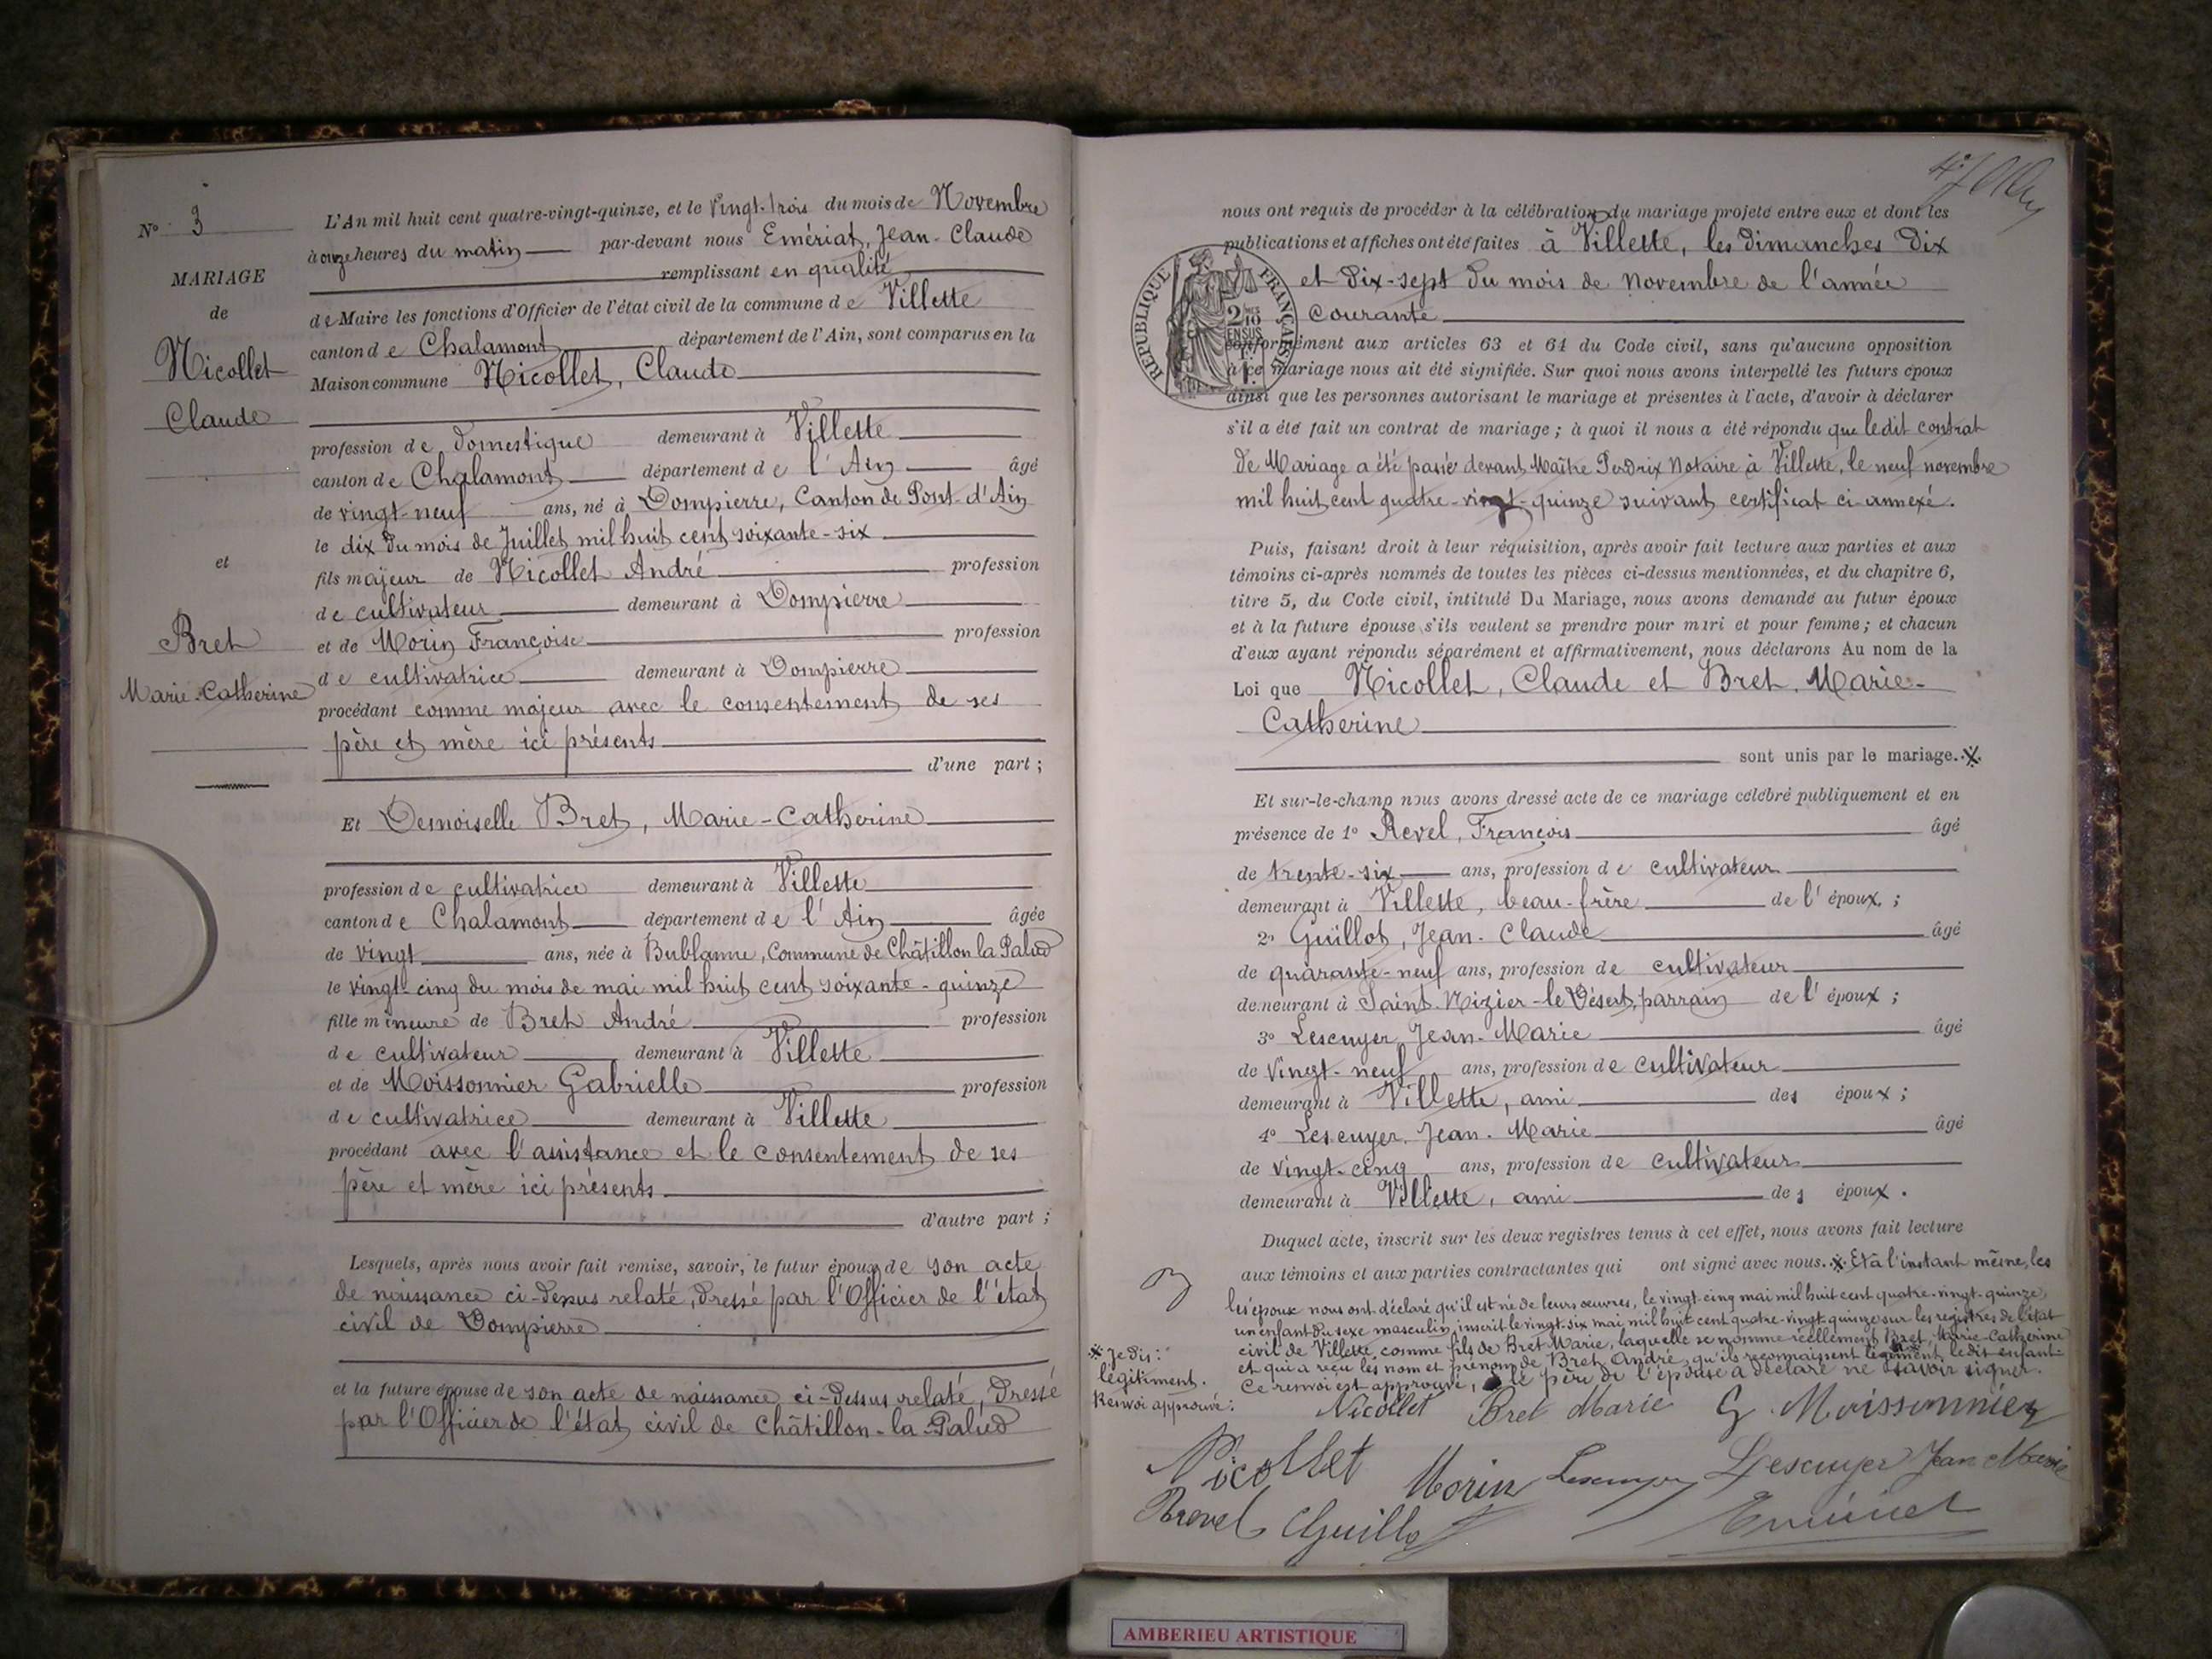 Nº 3
MARIAGE
de
Nicollet
Claude
et
Bret
Marie-Catherine
L'An mil huit cent quatre-vingt-quinze, et le vingt-trois du mois de Novembre
à onze heures du matin par-devant nous Emériat, Jean-Claude
remplissant en qualité
de Maire les fonctions d'Officier de l'état civil de la commune de Villette
canton de Chalamont département de l'Ain, sont comparus en la
Maison commune Nicollet, Claude
profession de domestique demeurant à Villette
canton de Chalamont département de l'Ain âgé
de vingt-neuf ans, né à Dompierre, Canton de Pont-d'Ain
le dix du mois de Juillet mil huit cent soixante-six
fils majeur de Nicollet André profession
de cultivateur demeurant à Dompierre
et de Morin Françoise profession
de cultivatrice demeurant à Dompierre
procédant comme majeur avec le consentement de ses
père et mère ici présents
d'une part ;
Et Demoiselle Bret, Marie-Catherine
profession de cultivatrice demeurant à Villette
canton de Chalamont département de l'Ain âgée
de vingt ans, née à Bublanne, Commune de Châtillon la Palud
le vingt-cinq du mois de mai mil huit cent soixante-quinze
fille mineure de Bret André profession
de cultivateur demeurant à Villette
et de Moissonnier Gabrielle profession
de cultivatrice demeurant à Villette
procédant avec l'assistance et le consentement de ses
père et mère ici présents
d'autre part ;
Lesquels, après nous avoir fait remise, savoir, le futur époux de son acte
de naissance ci-dessus relaté, dressé par l'Officier de l'état
civil de Dompierre
et la future épouse de son acte de naissance ci-dessus relaté, dressé
par l'Officier de l'état civil de Châtillon-la-Palud
nous ont requis de procéder à la célébration du mariage projeté entre eux et dont les
publications et affiches ont été faites à Villette, les dimanches dix
et dix-sept du mois de novembre de l'année
courante
REPUBLIQUE FRANÇAISE
conformément aux articles 63 et 64 du Code civil, sans qu'aucune opposition
à ce mariage nous ait été signifiée. Sur quoi nous avons interpellé les futurs époux
ainsi que les personnes autorisant le mariage et présentes à l'acte, d'avoir à déclarer
s'il a été fait un contrat de mariage ; à quoi il nous a été répondu que ledit contrat
de Mariage a été passé devant Maître Perdrix Notaire à Villette, le neuf novembre
mil huit cent quatre-vingt-quinze suivant certificat ci-annexé.
Puis, faisant droit à leur réquisition, après avoir fait lecture aux parties et aux
témoins ci-après nommés de toutes les pièces ci-dessus mentionnées, et du chapitre 6,
titre 5, du Code civil, intitulé Du Mariage, nous avons demandé au futur époux
et à la future épouse s'ils veulent se prendre pour mari et pour femme ; et chacun
d'eux ayant répondu séparément et affirmativement, nous déclarons Au nom de la
Loi que Nicollet, Claude et Bret, Marie-
Catherine
sont unis par le mariage.
Et sur-le-champ nous avons dressé acte de ce mariage célébré publiquement et en
présence de 1º Revel, François âgé
de trente-six ans, profession de cultivateur
demeurant à Villette, beau-frère de l'époux ;
2º Guillot, Jean-Claude âgé
de quarante-neuf ans, profession de cultivateur
demeurant à Saint-Nizier-le-Désert, parrain de l'époux ;
3º Lescuyer Jean-Marie âgé
de vingt-neuf ans, profession de cultivateur
demeurant à Villette, ami des époux ;
4º Lescuyer, Jean-Marie âgé
de vingt-cinq ans, profession de cultivateur
demeurant à Villette, ami des époux.
Duquel acte, inscrit sur les deux registres tenus à cet effet, nous avons fait lecture
aux témoins et aux parties contractantes qui ont signé avec nous. Et à l'instant même, les
les époux nous ont déclaré qu'il est né de leurs oeuvres, le vingt-cinq mai mil huit cent quatre-vingt-quinze,
un enfant du sexe masculin, inscrit le vingt-six mai mil huit cent quatre-vingt-quinze sur les registres de l'état
civil de Villette, comme fils de Bret Marie, laquelle se nomme réellement Bret, Marie-Catherine
et qui a reçu les nom et prénom de Bret André, qu'ils reconnaissent ledit enfant.
Ce renvoi est approuvé, le père de l'épouse a déclaré ne savoir signer.
Je dis:
légitiment.
Renvoi approuvé:
Nicollet Bret Marie G. Moissonnier
Nicollet Morin Lescuyer Lescuyer Jean Marie
Revel Guillot
AMBERIEU ARTISTIQUE